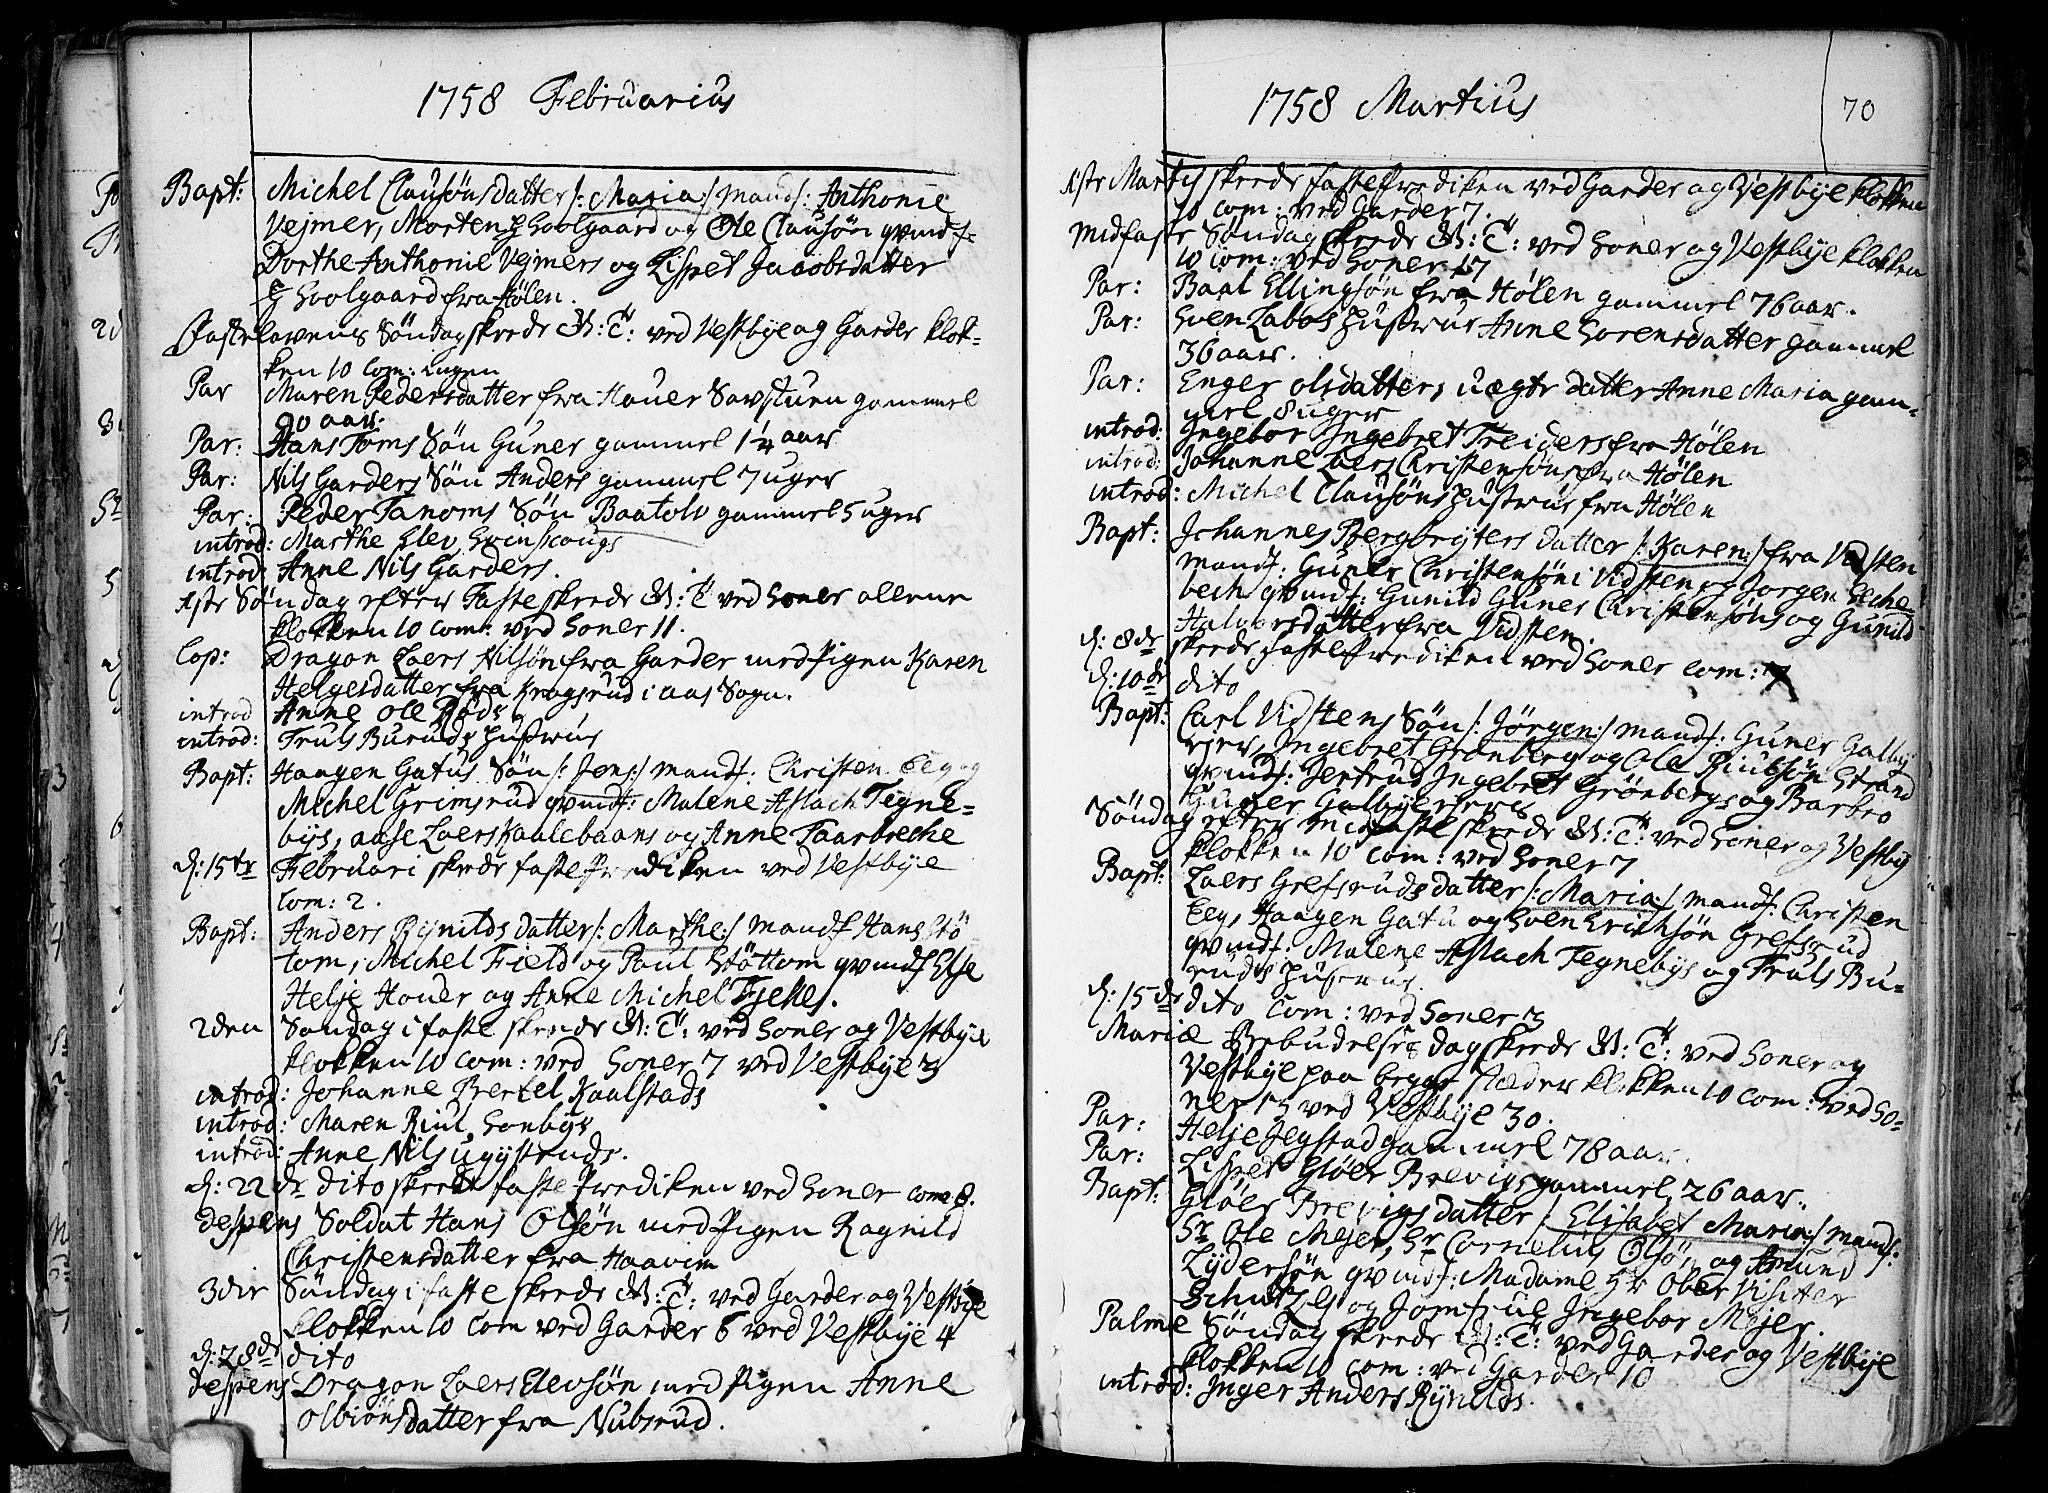 1758 Februarius
Bapt: Michel Clausøns datter /: Maria :/ mands: Anthonie
Vejmer, Morten Hoolgaard og Ole Clausøn qvinds:
Dorthe Anthonie Vejmers og Lispet Jacobsdatter
Hoolgaard fra Hølen.
Fastelavens Søndag skeede G: T: ved Vestbye og Garder klok-
ken 10 Com: ingen
Par Maren Pedersdatter fra Hauer Savstuen gammel
90 aar.
Par: Hans Toms Søn Guner gammel 1 1/4 aar
Par: Nils Garders Søn Anders gammel 7 uger
Par: Peder Tanoms Søn Baatolv gammel 5 uger
introd: Marthe Elev Svinscougs
introd: Anne Nils Garders.
1ste Søndag efter Faste skeede G: T: ved Soner allene
klokken 10 Com: ved Soner 11.
Cop: Dragon Laers Nilsøn fra Garder med Pigen Karen
Helgesdatter fra Kragsrud i Aas Sogn.
introd Anne Ole Røds
introd: Truls Buruds hustrue
Bapt: Haagen Gatus Søn /: Jens :/ mands: Christen Eeg og
Michel Grimsrud qvinds: Malene Aslach Tegne-
bijs, Aase Laers Kaalebaans og Anne Taarbeche
d: 15de Februari skeede fastePrediken ved Vestbye
Com: 2.
Bapt: Anders Rynilds datter /: Marthe :/ mands Hans Stø-
tom, Michel Field og Paul Støttom qvinds Else
Helje Houer og Anne Michel Fjelles.
2den Søndag i faste skeede G: T: ved Soner og Vestbye
klokken 10 Com: ved Soner 7 ved Vestbye 3
introd: Johanne Bertel Kaalstads
introd: Maren Riul Sonbys
introd: Anne Nils
d: 22de dito skeede faste Prediken ved Soner Com: 8.
despens Soldat Hans Olsøn med Pigen Ragnild
Christensdatter fra Haavim
3die Søndag i faste skeede G: T: ved Garder og Vestbye
klokken 10 Com ved Garder 6 ved Vestbye 4
d: 28de dito
despens Dragon Laers Elevsøn med Pigen Anne
Olbiønsdatter fra Nubsrud.
1758 Martius
70
1ste Martij skeede fastePrediken ved Garder og Vestbye klokken
10 Com: ved Garder 7.
Midfaste Søndag skeede G: T: ved Soner og Vestbye klokken
10 Com: ved Soner 17
Par: Baal Ellingsøn fra Hølen gammel 76 aar.
Par: Sven Labos hustrue Anne Sorensdatter gammel
36 aar.
Par: Enger Olsdatters uægte datter Anne Maria gam-
mel 8 uger
introd: Ingebor Ingebret Treiders fra Hølen
introd: Johanne Laers Christensøns fra Hølen
introd: Michel Clausøns hustrue fra Hølen
Bapt: Johannes Bergbryters datter /: Karen :/ fra Vidsten
mands: Guner Christensøn i Vidsten og Jorgen Elche-
bech qvinds: Gunild Guner Christensøns og Gunild
Halvorsdatter fra Vidsten.
d: 8de skeede fastePrediken ved Soner Com: 7
d: 10de dito
Bapt: Carl Vidstens Søn /: Jørgen :/ mands: Guner Galby
eier, Ingebret Grønberg og Ole Riulsøn Strand
qvinds: Jertrud Ingebret Grønbergs og Barbro
Guner Galbyeeiers
Søndag efter Midfaste skeede G: T: ved Soner og Vestby
klokken 10 Com: ved Soner 7
Bapt: Laers Grefsruds datter /: Maria :/ mands: Christen
Eeg, Haagen Gatu og Sven Erichsøn Grefsrud
qvinds: Malene Aslach Tegnebys og Truls Bu-
ruds hustrue.
d: 15de dito Com: ved Soner 3
Mariæ Bebudelses dag skeede G: T: ved Soner og
Vestbye paa begge stæder klokken 10 Com: ved So-
ner 15 ved Vestbye 30.
Par: Helje Jegstad gammel 78 aar.
Par: Lispet Gløer Brevigs gammel 26 aar.
Bapt: Gløer Brevigs datter /: Elisabet Maria :/ mands:
Sr Ole Mejer, Sr Cornelius Olsøn og Amund
Lydersøn qvinds: Madame Sr Ober Visiter
Schultz og Jomfrue Ingebor Mejer.
Palme Søndag skeede G: T: ved Garder og Vestbye
klokken 10 Com: ved Garder 10
introd: Inger Anders Rynilds.